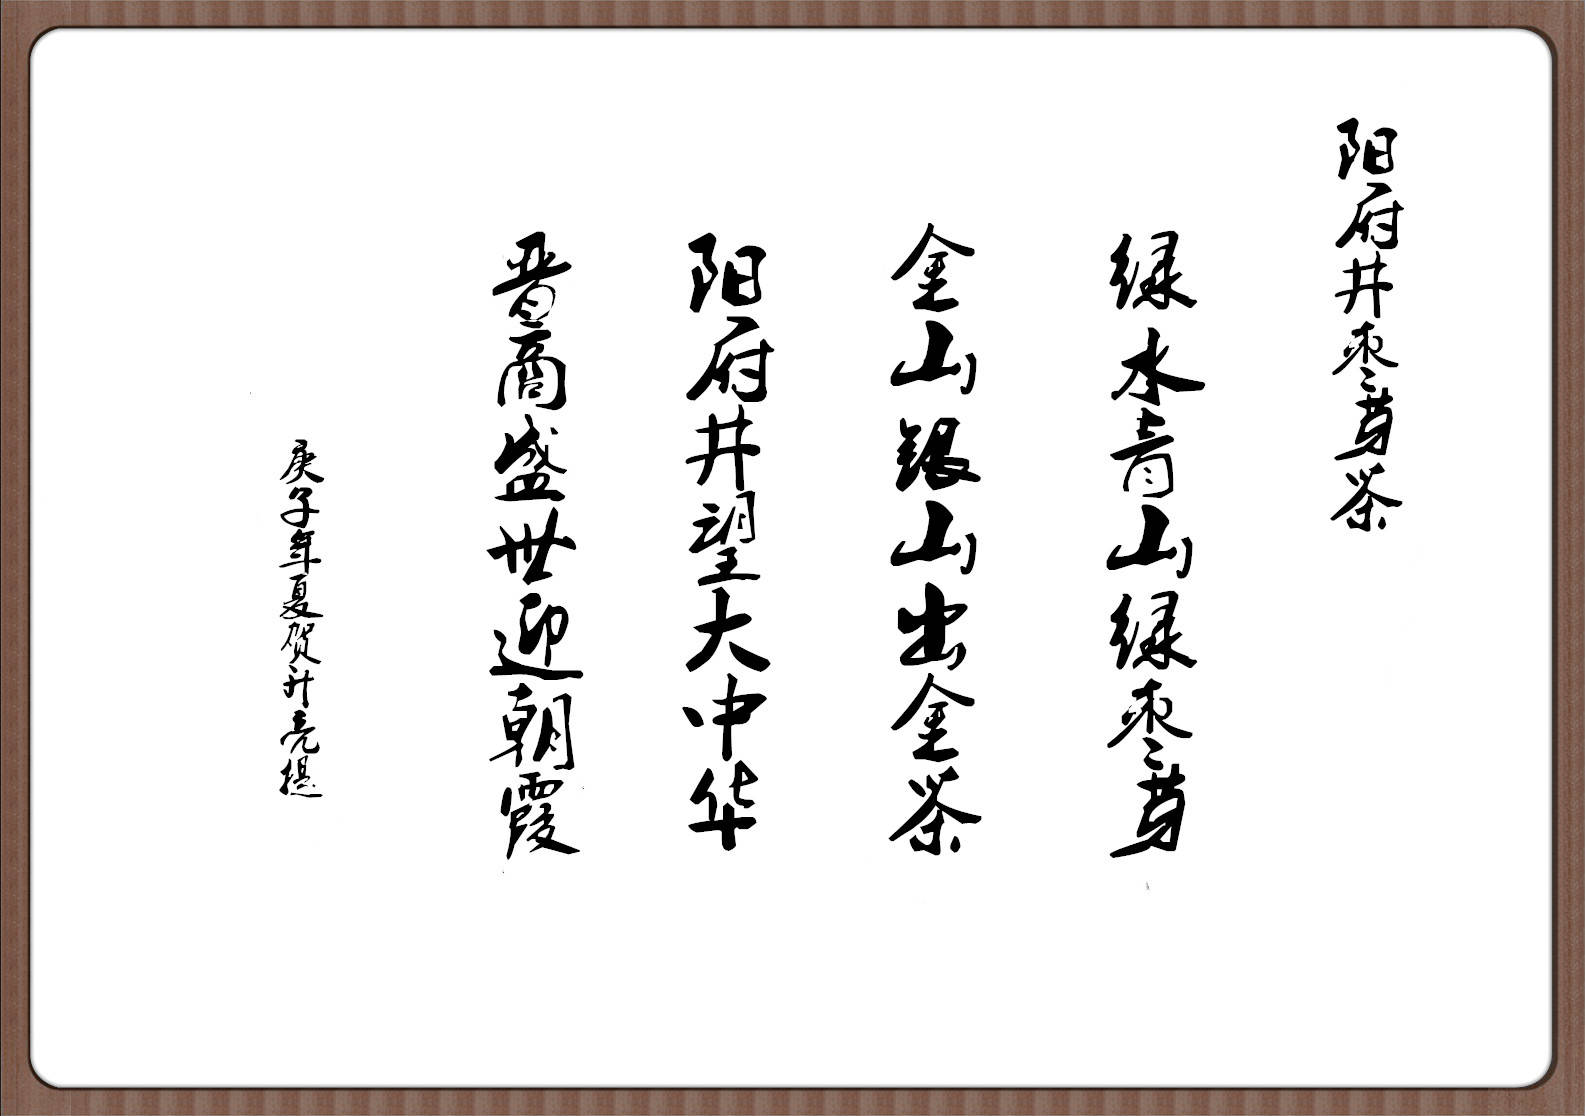 阳府井枣芽茶
绿水青山绿枣芽
金山银山出金茶
阳府井望大中华
晋商盛世迎朝霞
庚子年夏贺升亮提